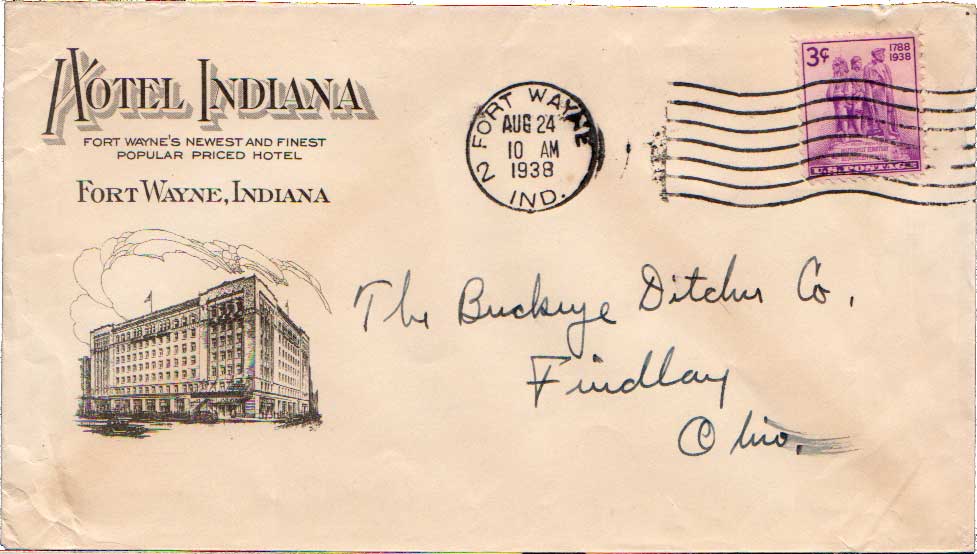 HOTEL INDIANA
FORT WAYNE'S NEWEST AND FINEST
POPULAR PRICED HOTEL
FORT WAYNE, INDIANA
FORT WAYNE
AUG 24
10 AM
1938
2
IND.
3¢
1788
1938
U.S. POSTAGE
The Buckeye Ditcher Co.
Findlay
Ohio.